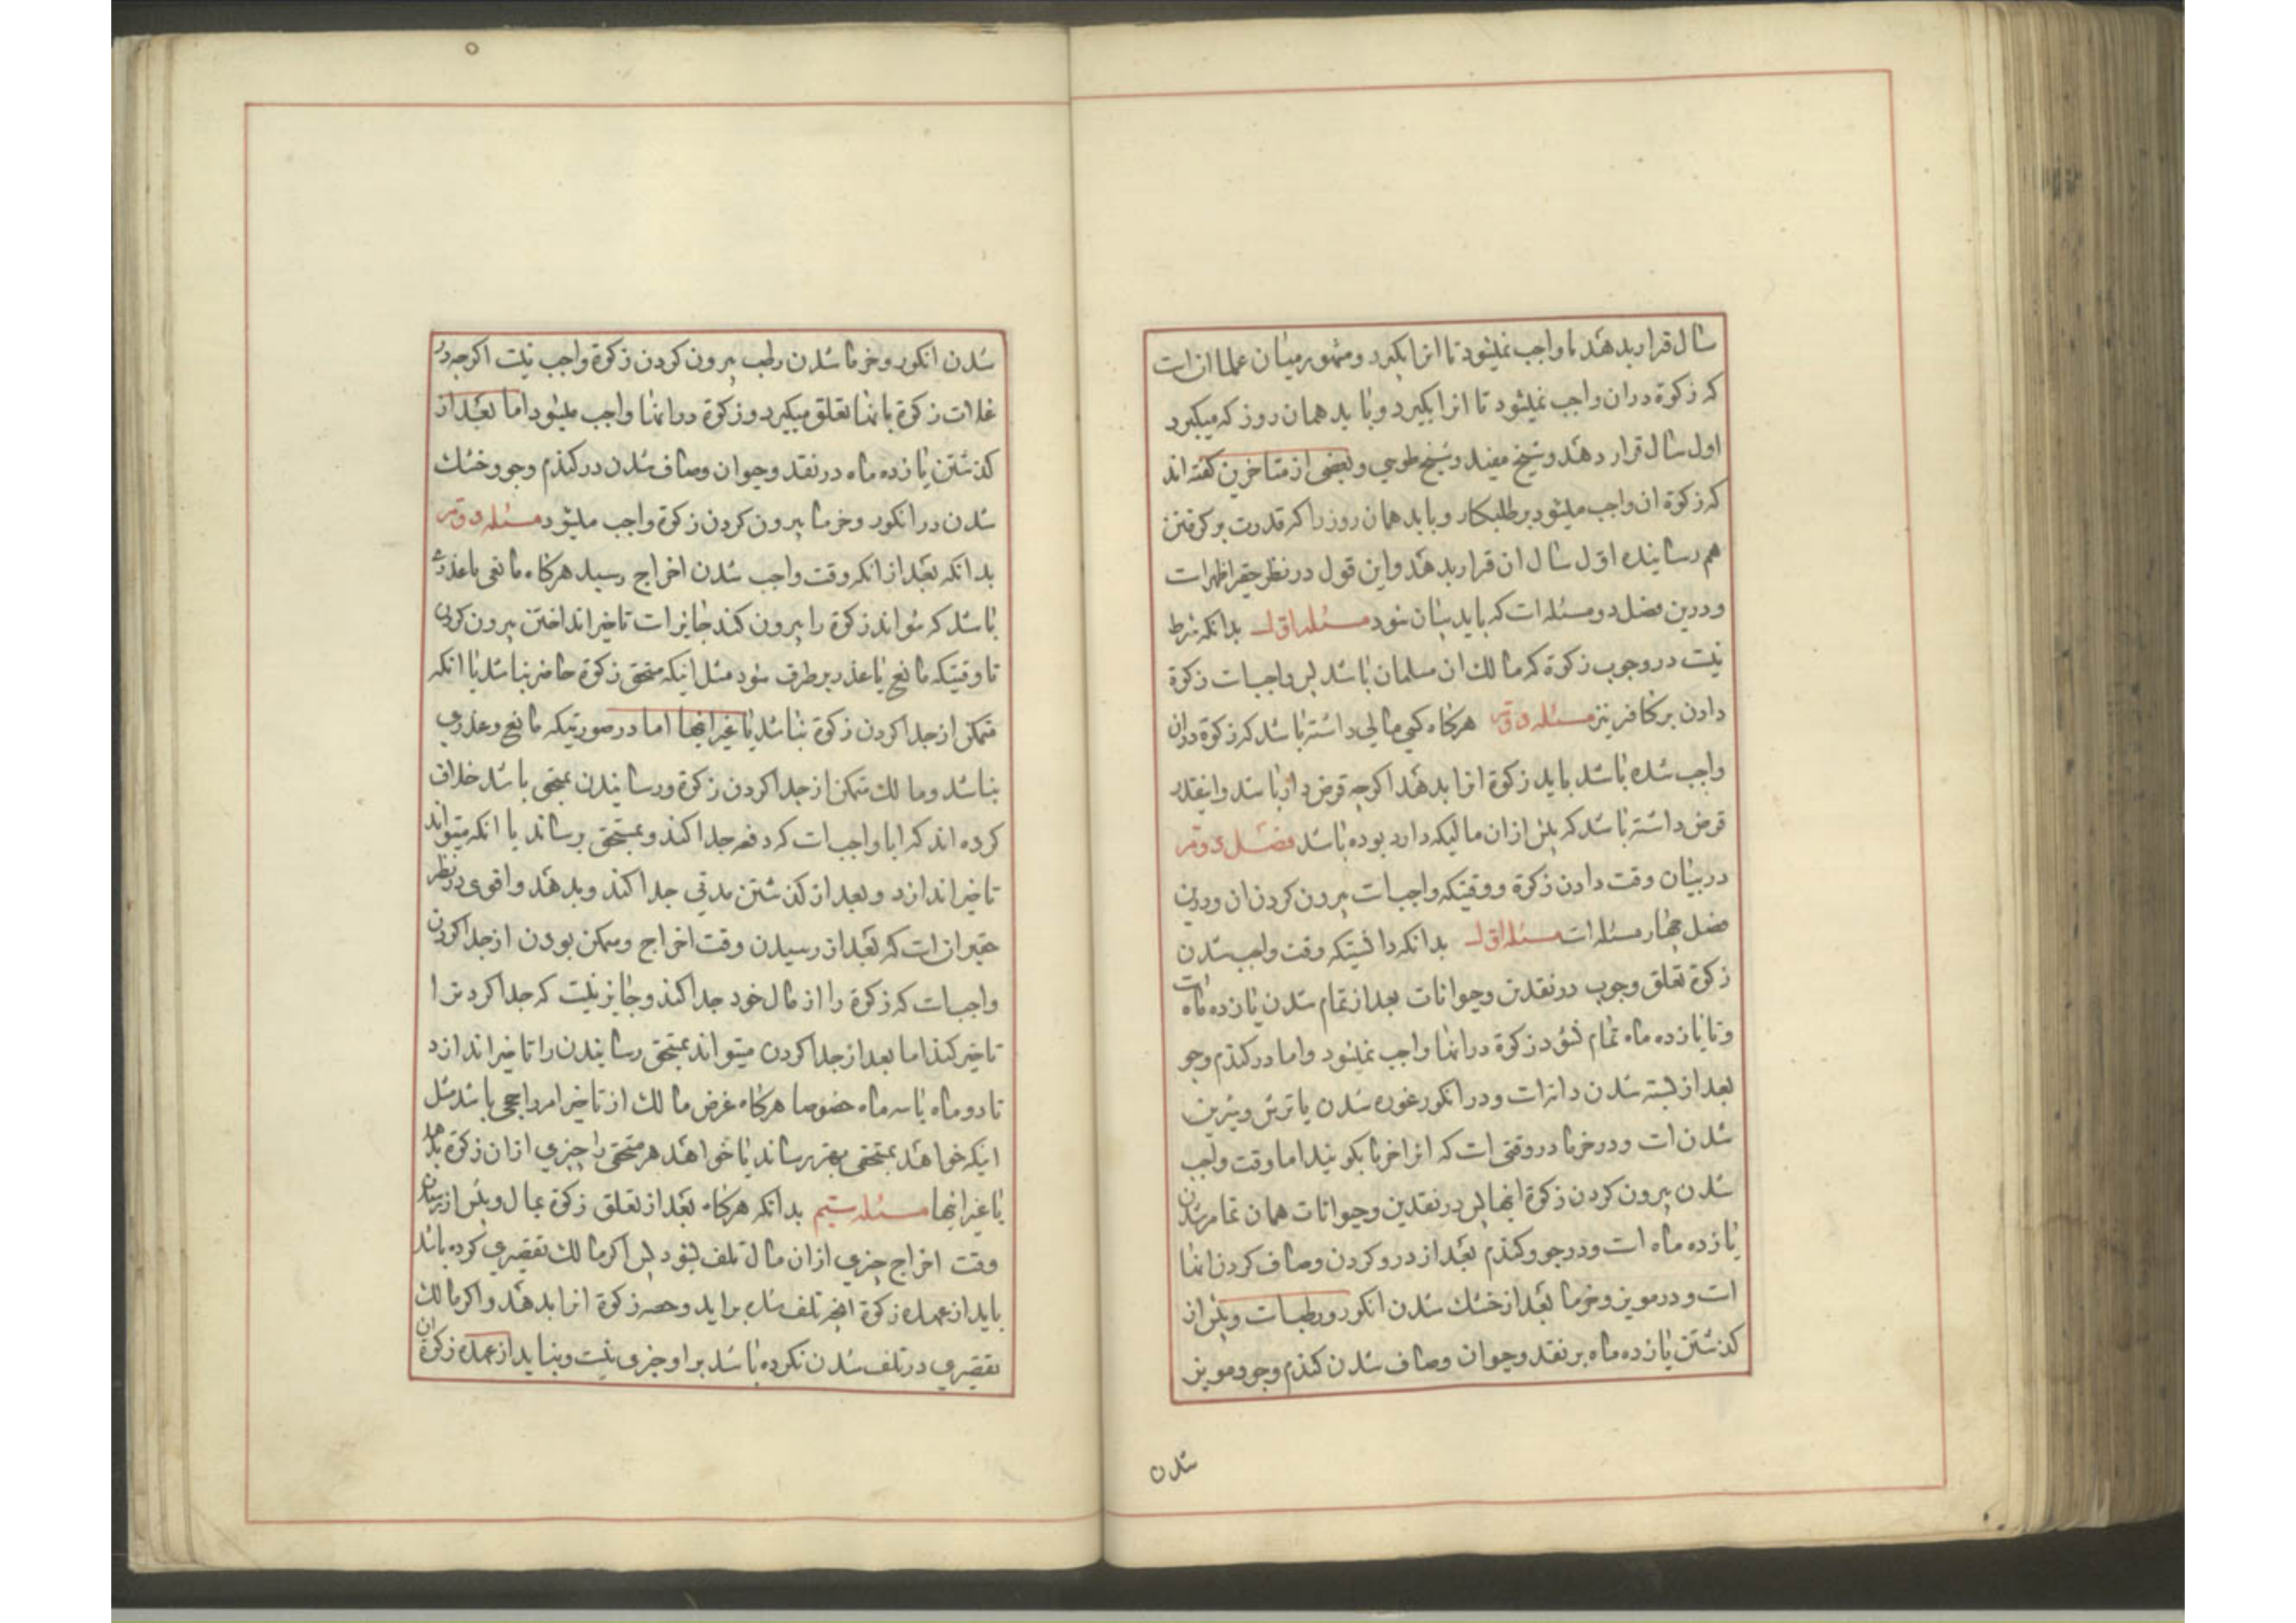 سال قرار بدهد یا واجب نمیشود تا انرا بکیرد و مشهور میان علما ان است
که زکوة دران واجب نمیشود تا انرا بکیرد و باید همان روز که میکیرد
اول سال قرار دهد و شیخ مفید و شیخ طوسی و بعضی از متاخرین کفته اند
که زکوة ان واجب میشود بر طلبکار و باید همان روز را که قدرت بر کرفتن
هم رسانیده اول سال ان قرار بدهد و این قول در نظر حقیر اظهر است
و درین فصل دو مسئله است که باید بیان شود مسئله اول بدانکه شرط
نیست در وجوب زکوة که مالک ان مسلمان باشد پس واجب است زکوة
دادن بر کافر نیز مسئله دوم هرکاه کسی مالی داشته باشد که زکوة دران
واجب شده باشد باید زکوة انرا بدهد اکرچه قرض دار باشد و اینقدر
قرض داشته باشد که بیش ازان مالیکه دارد بوده باشد فصل دوم
در بیان وقت دادن زکوة و وقتیکه واجب است بیرون کردن ان و درین
فصل چهار مسئله است مسئله اول بدانکه دانستیکه وقت واجب شدن
زکوة تعلق وجوب در نقدین و حیوانات بعد از تمام شدن یازده ماه است
و تا یازده ماه تمام نشود زکوة درانها واجب نمیشود و اما در کندم و جو
بعد از بسته شدن دانه است و در انکور غوره شدن یا ترش و شیرین
شدن است و در خرما در وقتی است که انرا خرما بکویند اما وقت واجب
شدن بیرون کردن زکوة اینها پس در نقدین و حیوانات همان تمام شدن
یازده ماه است و در جو و کندم بعد از درو کردن و صاف کردن انها
است و در مویز و خرما بعد از خشک شدن انکور و رطب است و پیش از
کذشتن یازده ماه بر نقد و حیوان و صاف شدن کندم و جو و مویز
شدن
شدن انکور و خرما شدن رطب بیرون کردن زکوة واجب نیست اکرچه در
غلات زکوة بانها تعلق میکیرد و زکوة درانها واجب میشود اما بعد از
کذشتن یازده ماه در نقد و حیوان و صاف شدن در کندم و جو و خشک
شدن در انکور و خرما بیرون کردن زکوة واجب میشود مسئله دوم
بدانکه بعد از انکه وقت واجب شدن اخراج رسید هرکاه مانعی یا عذری
باشد که نتواند زکوة را بیرون کند جایز است تاخیر انداختن بیرون کردن
تا وقتیکه مانع یا عذر برطرف شود مثل اینکه مستحق زکوة حاضر نباشد یا انکه
متمکن از جدا کردن زکوة نباشد یا غیر اینها اما در صورتیکه مانع و عذری
نباشد و مالک متمکن از جدا کردن زکوة و رسانیدن بمستحق باشد خلاف
کرده اند که ایا واجب است که دفعه جدا کند و بمستحق برساند یا انکه میتواند
تاخیر اندازد و بعد از کذشتن مدتی جدا کند و بدهد و اقوی در نظر
حقیر ان است که بعد از رسیدن وقت اخراج و ممکن بودن از جدا کردن
واجب است که زکوة را از مال خود جدا کند و جایز نیست که جدا کردنرا
تاخیر کند اما بعد از جدا کردن میتواند بمستحق رسانیدن را تاخیر اندازد
تا دو ماه یا سه ماه خصوصا هرکاه غرض مالک از تاخیر امر راجحی باشد مثل
اینکه خواهد بمستحق بهتر رساند یا خواهد هر مستحق را چیزی ازان زکوة بدهد
یا غیر اینها مسئله سیم بدانکه هرکاه بعد از تعلق زکوة بمال و پیش از رسیدن
وقت اخراج چیزی ازان مال تلف شود پس اکر مالک تقصیری کرده باشد
باید از عهده زکوة انچه تلف شده براید و حصه زکوة انرا بدهد و اکر مالک
تقصیری در تلف شدن نکرده باشد بر او چیزی نیست و نباید از عهده زکوة ان